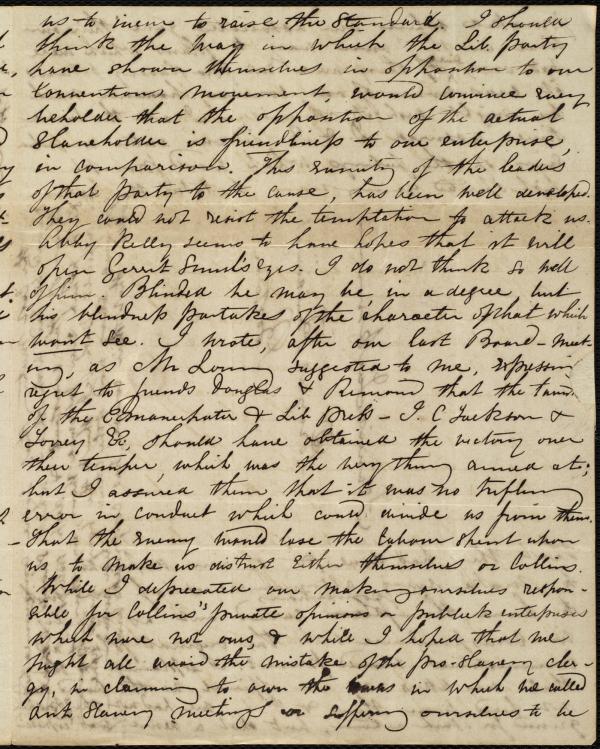 us to incur to raise the Standard. I should
think the way in which the Lib. party
have shown themselves in opposition to our
Conventions movement, would convince every
beholder that the opposition of the actual
Slaveholder is friendliness to our enterprise,
in comparison. This enmity of the leaders
of that party to the cause, has been well developed.
They could not resist the temptation to attack us.
Abby Kelly seems to have hopes that it will
open Gerrit Smith's eyes. I do not think so well
of him. Blinded he may be, in a degree, but
his blindness partakes of the character of that which
wont see. I wrote, after our last Board-meet-
ing, as Mr Loring suggested to me, expressing
regret to friends Douglas & Remond that the
of the Emancipator & Lib press - J. C Jackson &
Torrey &c, should have obtained the victory over
their temper, which was the very thing aimed at;
but I assured them that it was no trifling
error in conduct which could divide us from them.
That the enemy would lose the labour spent upon
us, to make us distrust either themselves or Collins.
While I deprecated our making ourselves respon-
sible for Collins's private opinions or publick enterprises
which were not ours, & while I hoped that we
might all avoid the mistake of the pro-slavery cler-
gy, in claiming to own the in which we called
anti slavery meetings or suffering ourselves to be